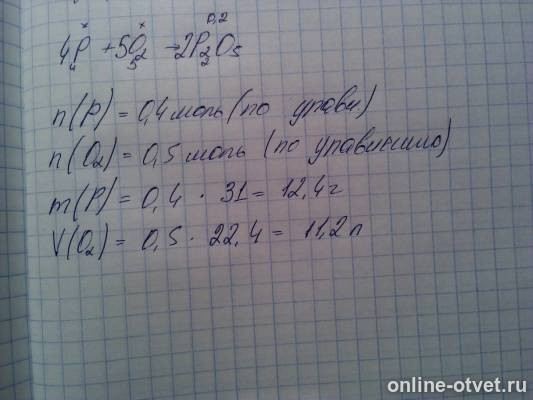 x x 0,2
4P + 5O2 → 2P2O5
4 5 2
n(P) = 0,4 моль (по уравн)
n(O2) = 0,5 моль (по уравнению)
m(P) = 0,4 · 31 = 12,4 г
V(O2) = 0,5 · 22,4 = 11,2 л
online-otvet.ru